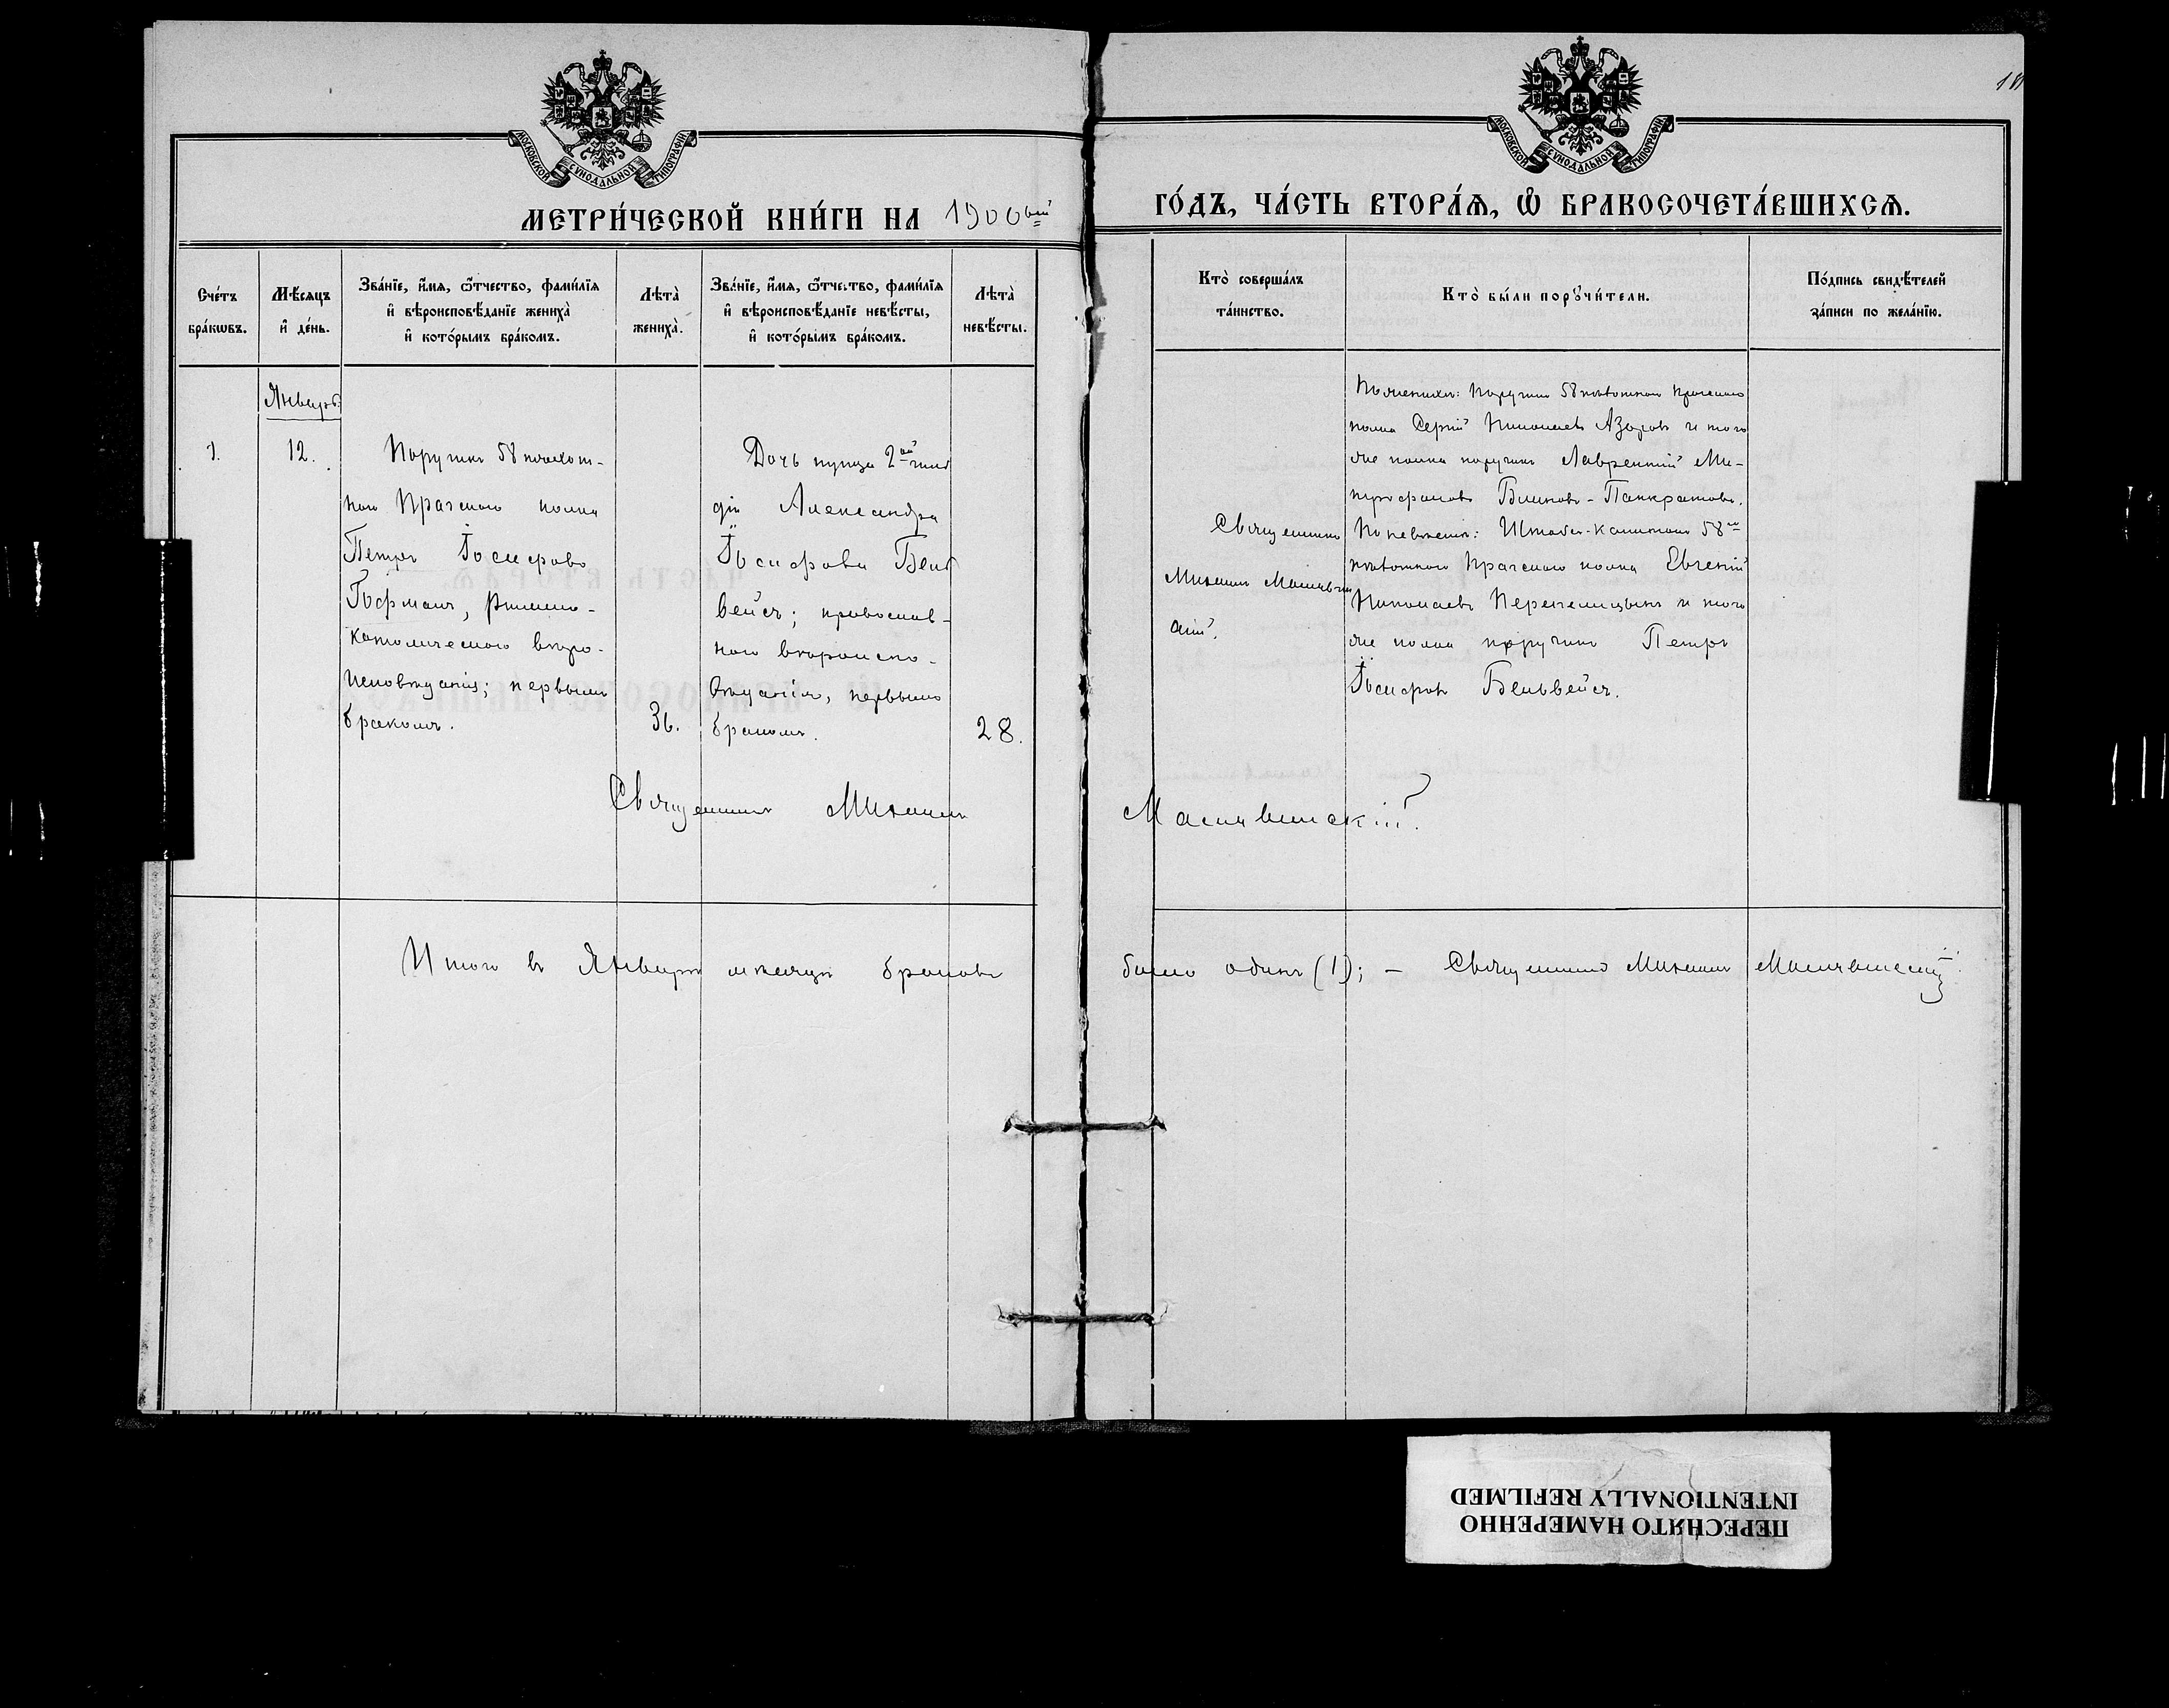 18
МОСКОВСКОЙ СѴНОДАЛЬНОЙ ТИПОГРАФІИ
МОСКОВСКОЙ СѴНОДАЛЬНОЙ ТИПОГРАФІИ
МЕТРИ́ЧЕСКОЙ КНИ́ГИ НА 1900ый
ГО́ДЪ, ЧА́СТЬ ВТОРА́Я, Ѡ БРАКОСОЧЕТА́ВШИХСЯ.
Сче́тъ
бра́кѡвъ.
Мѣ́сяцъ
и҆ де́нь.
Зва́нїе, и҆́мя, ѻ҆́тчество, фами́лїя
и҆ вѣроисповѣ́данїе жениха̀
и҆ кото́рымъ бра́комъ.
Лѣта̀
жениха̀.
Зва́нїе, и҆́мя, ѻ҆́тчество, фами́лїя
и҆ вѣроисповѣ́данїе невѣ́сты,
и҆ кото́рымъ бра́комъ.
Лѣта̀
невѣ́сты.
Кто̀ соверша́лъ
та́инство.
Кто̀ бы́ли порꙋчи́тели.
По́дпись свидѣ́телей
за́писи по жела́нїю.
Январь
1.
12.
Поручикъ 58 пѣхот-
наго Прагскаго полка
Петръ Іосифовъ
Гофманъ, Римско-
католическаго вѣро-
исповѣданія; первымъ
бракомъ.
36.
Дочь купца 2ой гиль
діи Александра
Іосифова Бель
вейсъ; православ-
наго вѣроиспо-
вѣданія, первымъ
бракомъ.
28.
Священникъ
Михаилъ Маснѣвин
скій.
По женихѣ: Поручикъ 58 пѣхотнаго Прагскаго
полка Сергій Николаевъ Азаровъ и того
же полка поручикъ Лаврентій Ми-
трофановъ Панкратовъ.
По невѣстѣ: Штабсъ-Капитанъ 58го
пѣхотнаго Прагскаго полка Евгеній
Николаевъ Перепелицынъ и того
же полка поручикъ Петръ
Іосифовъ Бельвейсъ.
Священникъ Михаилъ
Итого въ Январѣ мѣсяцѣ браковъ было одинъ (1); — Священникъ Михаилъ
ПЕРЕСНЯТО НАМЕРЕННО
INTENTIONALLY REFILMED